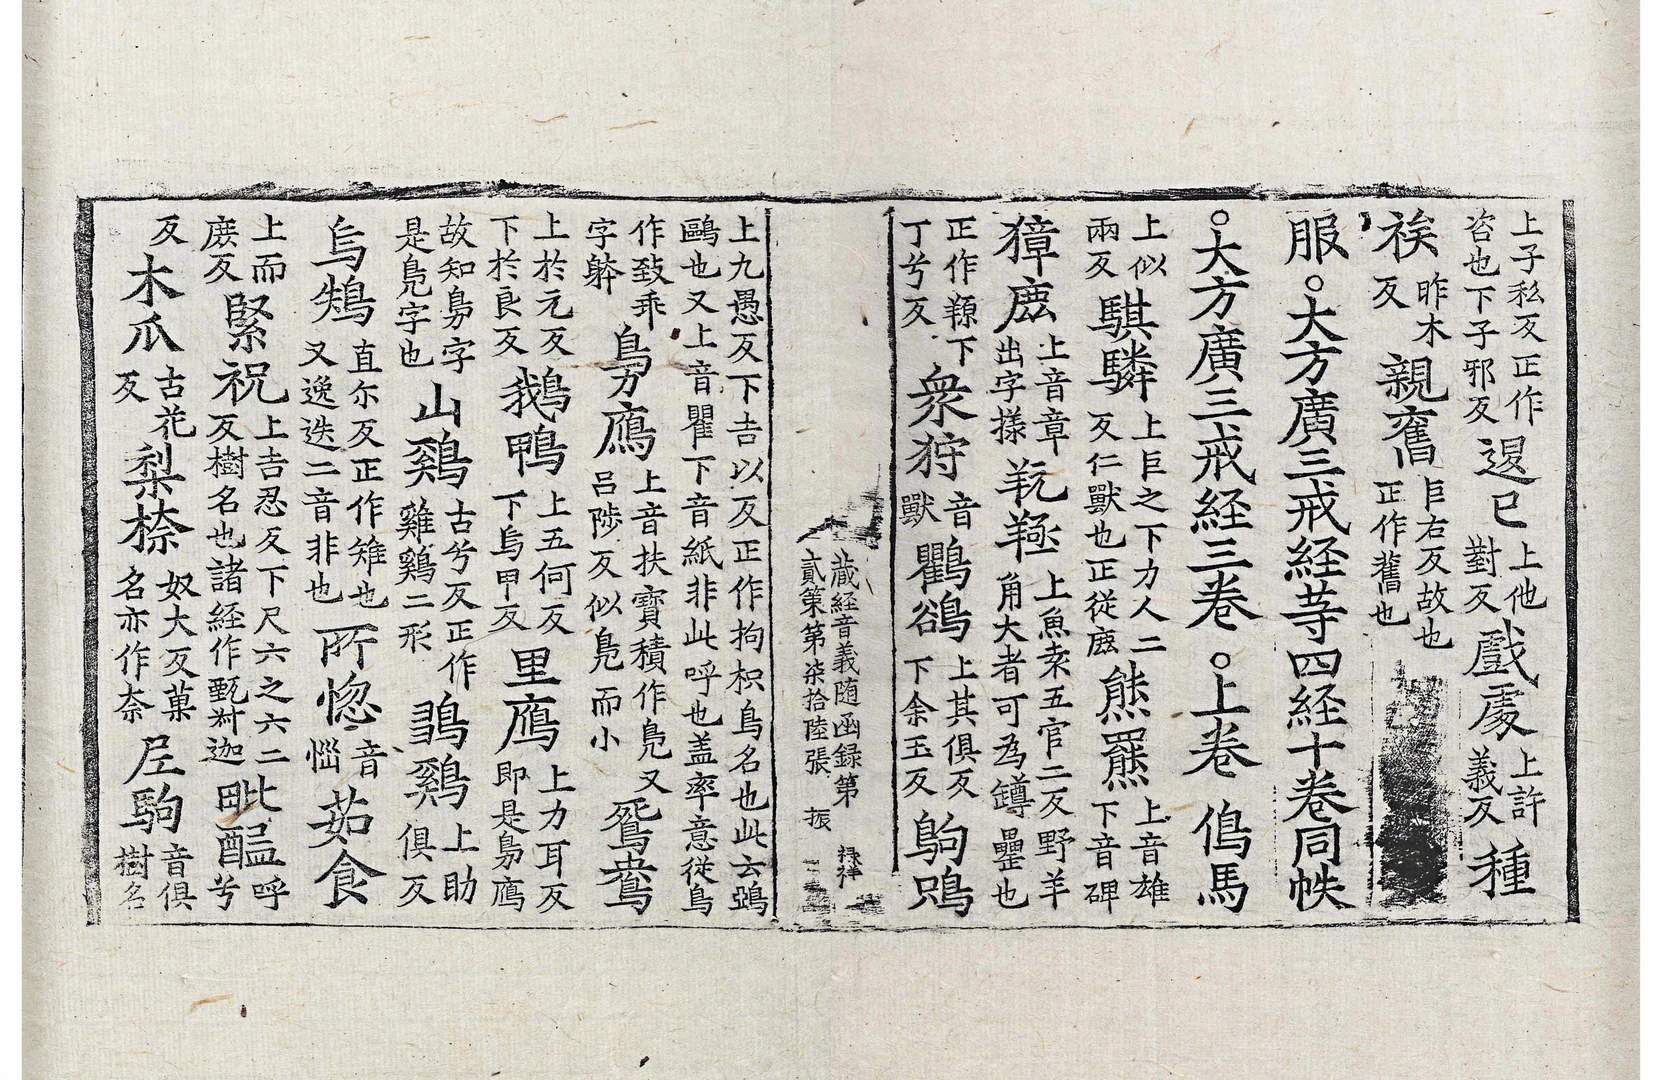 上子私反正作咨也下子邪反退已上他對反戲處上許義反種
族昨木反親舊巨右反故也正作舊也
服○大方廣三戒経等四経十卷同帙
○大方廣三戒経三卷○上卷傷馬
上似兩反騏驎上巨之下力人二反仁獸也正從鹿熊羆上音雄下音碑
獐鹿上音章出字樣羱羺上魚袁五官二反野羊角大者可為鐏罍也
正作羱下丁兮反衆狩音獸鸜鵒上其俱反下余玉反鴝鴞
藏経音義随函録第貳第第柒拾陸張 振 禄祥
上九愚反下吉以反正作拘枳鳥名也此云鵶鷗也又上音瞿下音紙非此呼也盖率意從鳥
作致乖字躰鳧鴈上音扶寳積作鳧又呂陟反似鳧而小鴛鴦
上於元反下於良反鵝鴨上五何反下烏甲反里鴈上力耳反即是鳧鴈
故知鳧字是鳧字也山鷄古兮反正作雞鷄二形鶵鷄上助俱反
烏鴙直尓反正作雉也又逸迭二音非也所惚音惱茹食
上而庶反緊祝上吉忍反下尺六之六二反樹名也諸経作甄叔迦毗醖呼兮
反木爪古花反梨㮈奴大反菓名亦作柰𡰱駒音俱樹名